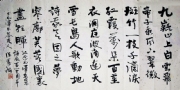 九嶷山上白雲飛
帝子乘風下翠微
斑竹一枝千滴淚
紅霞萬朵百重
衣洞庭波湧連天
雪長島人歌動地
詩我欲因之夢
寥廓芙蓉國裏
盡朝暉